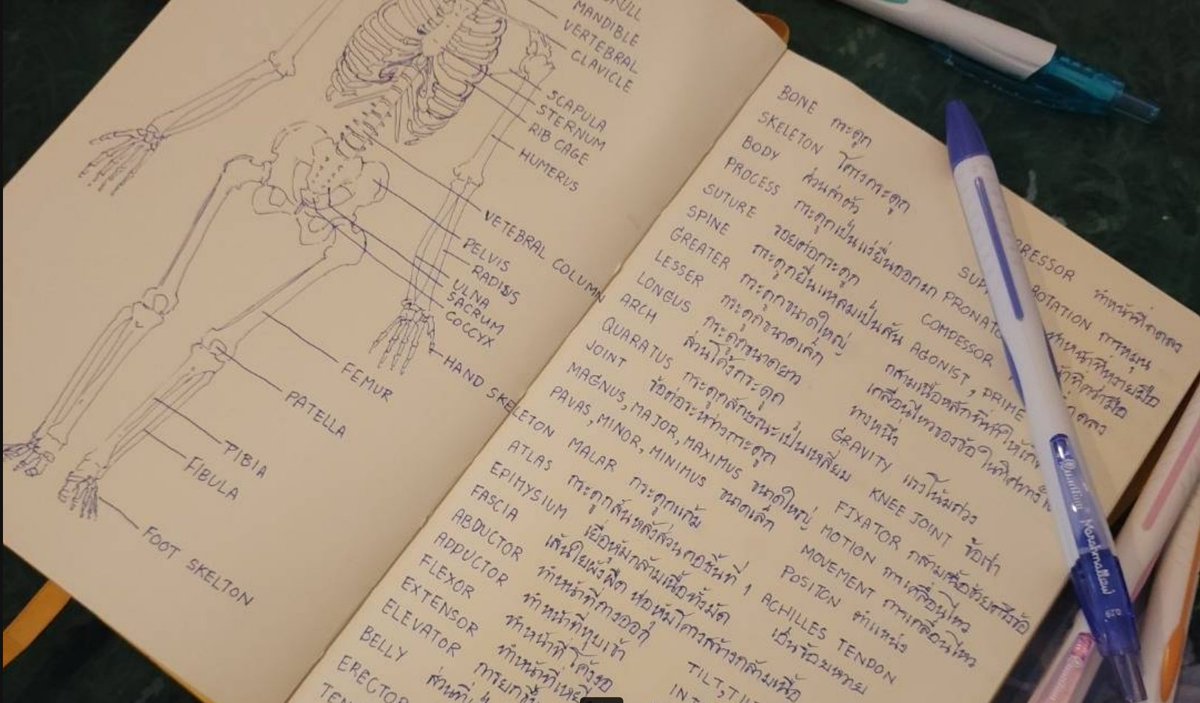 MANDIBLE
VERTEBRAL
CLAVICLE
SCAPULA
STERNUM
RIB CAGE
HUMERUS
VETEBRAL COLUMN
PELVIS
RADIUS
ULNA
SACRUM
COCCYX
HAND SKELETON
FEMUR
PATELLA
PIBIA
FIBULA
FOOT SKELTON
BONE กระดูก
SKELETON โครงกระดูก
BODY ส่วนลำตัว
PROCESS กระดูกเป็นแง่ยื่นออกมา
SUTURE รอยต่อกระดูก
SPINE กระดูกยื่นแหลมเป็นสัน
GREATER กระดูกขนาดใหญ่
LESSER กระดูกขนาดเล็ก
LONGUS กระดูกขนาดยาว
ARCH ส่วนโค้งกระดูก
QUARATUS กระดูกลักษณะเป็นเหลี่ยม
JOINT ข้อต่อระหว่างกระดูก
MAGNUS, MAJOR, MAXIMUS ขนาดใหญ่
PAVAS, MINOR, MINIMUS ขนาดเล็ก
MALAR กระดูกแก้ม
ATLAS กระดูกสันหลังส่วนคอชิ้นที่ 1
EPIMYSIUM เยื่อหุ้มกล้ามเนื้อทั้งมัด
FASCIA เส้นใยพังผืด ห่อหุ้มโครงสร้างกล้ามเนื้อ
ABDUCTOR ทำหน้าที่กางออก
ADDUCTOR ทำหน้าที่หุบเข้า
FLEXOR ทำหน้าที่โค้งงอ
EXTENSOR
ELEVATOR
BELLY
ERECTOR
ทำหน้าที่กดลง
ROTATION การหมุน
COMPESSOR
AGONIST, PRIME
ทางหนึ่ง
GRAVITY แรงโน้มถ่วง
KNEE JOINT ข้อเข่า
FIXATOR
MOTION การเคลื่อนไหว
MOVEMENT การเคลื่อนไหว
POSITON ตำแหน่ง
ACHILLES TENDON เอ็นร้อยหวาย
Quantum
Marshmallow